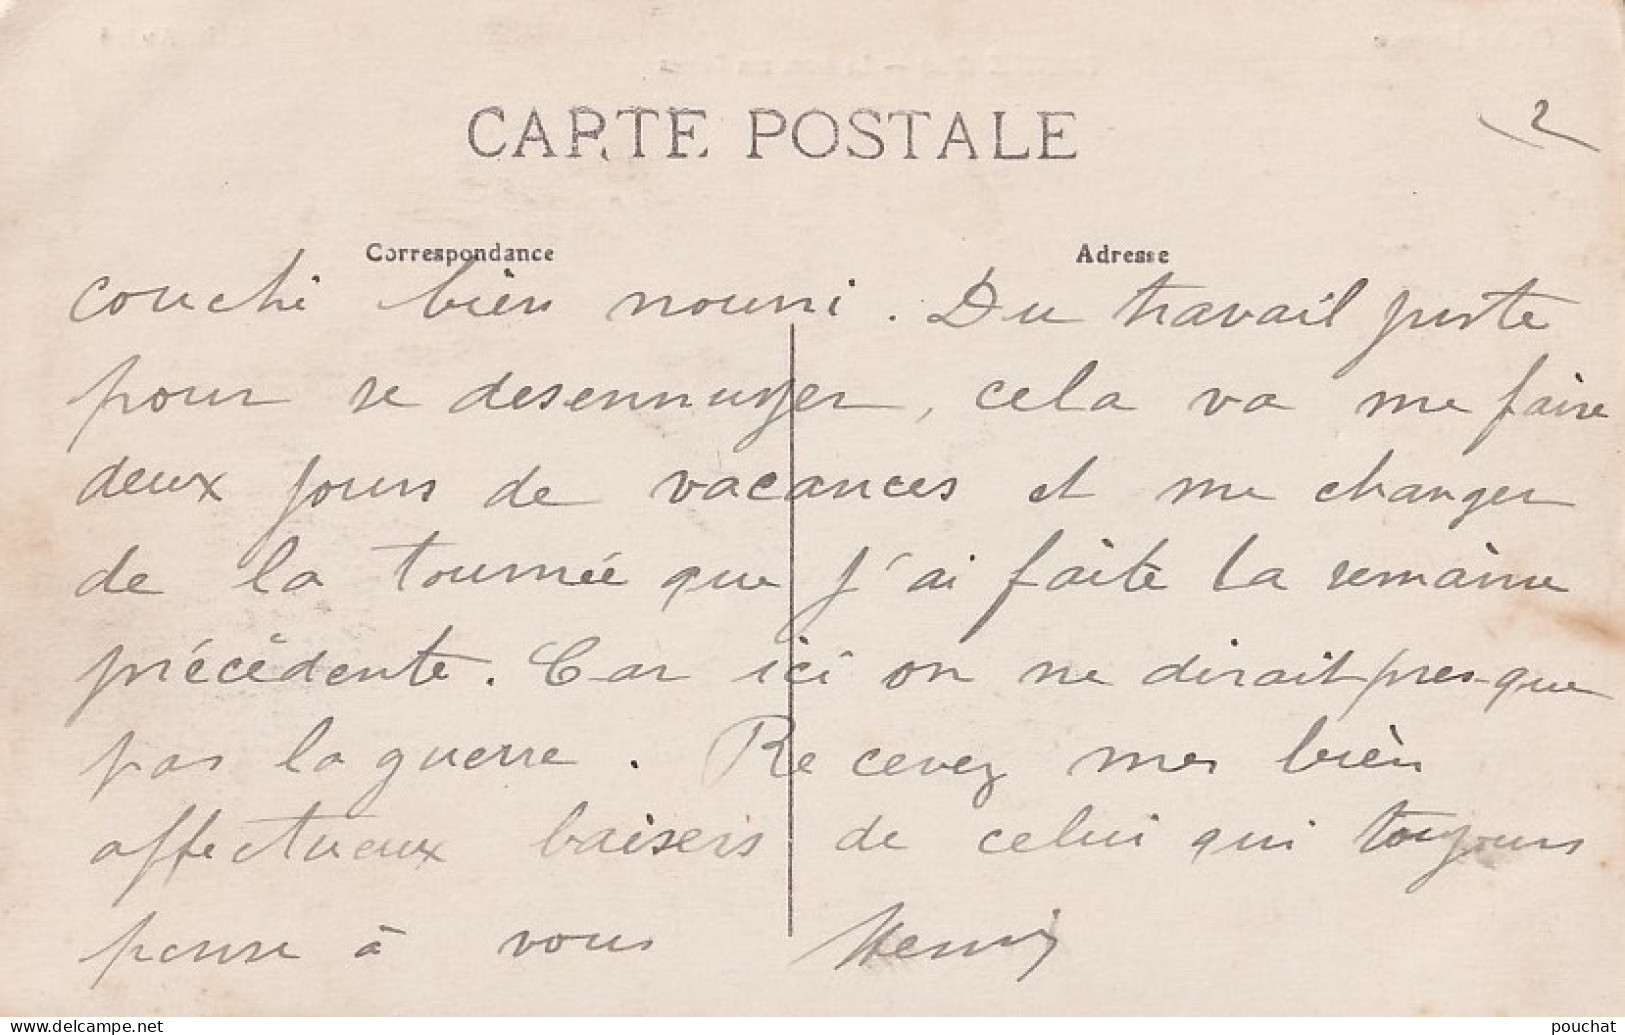 2
CARTE POSTALE
Correspondance Adresse
couché bien nourri. Du travail juste
pour se desennuyer, cela va me faire
deux jours de vacances et me changer
de la tournée que j'ai faite la semaine
précédente. Car ici on ne dirait presque
pas la guerre. Recevez mes bien
affectueux baisers de celui qui toujours
pense à vous Henri
www.delcampe.net pouchat